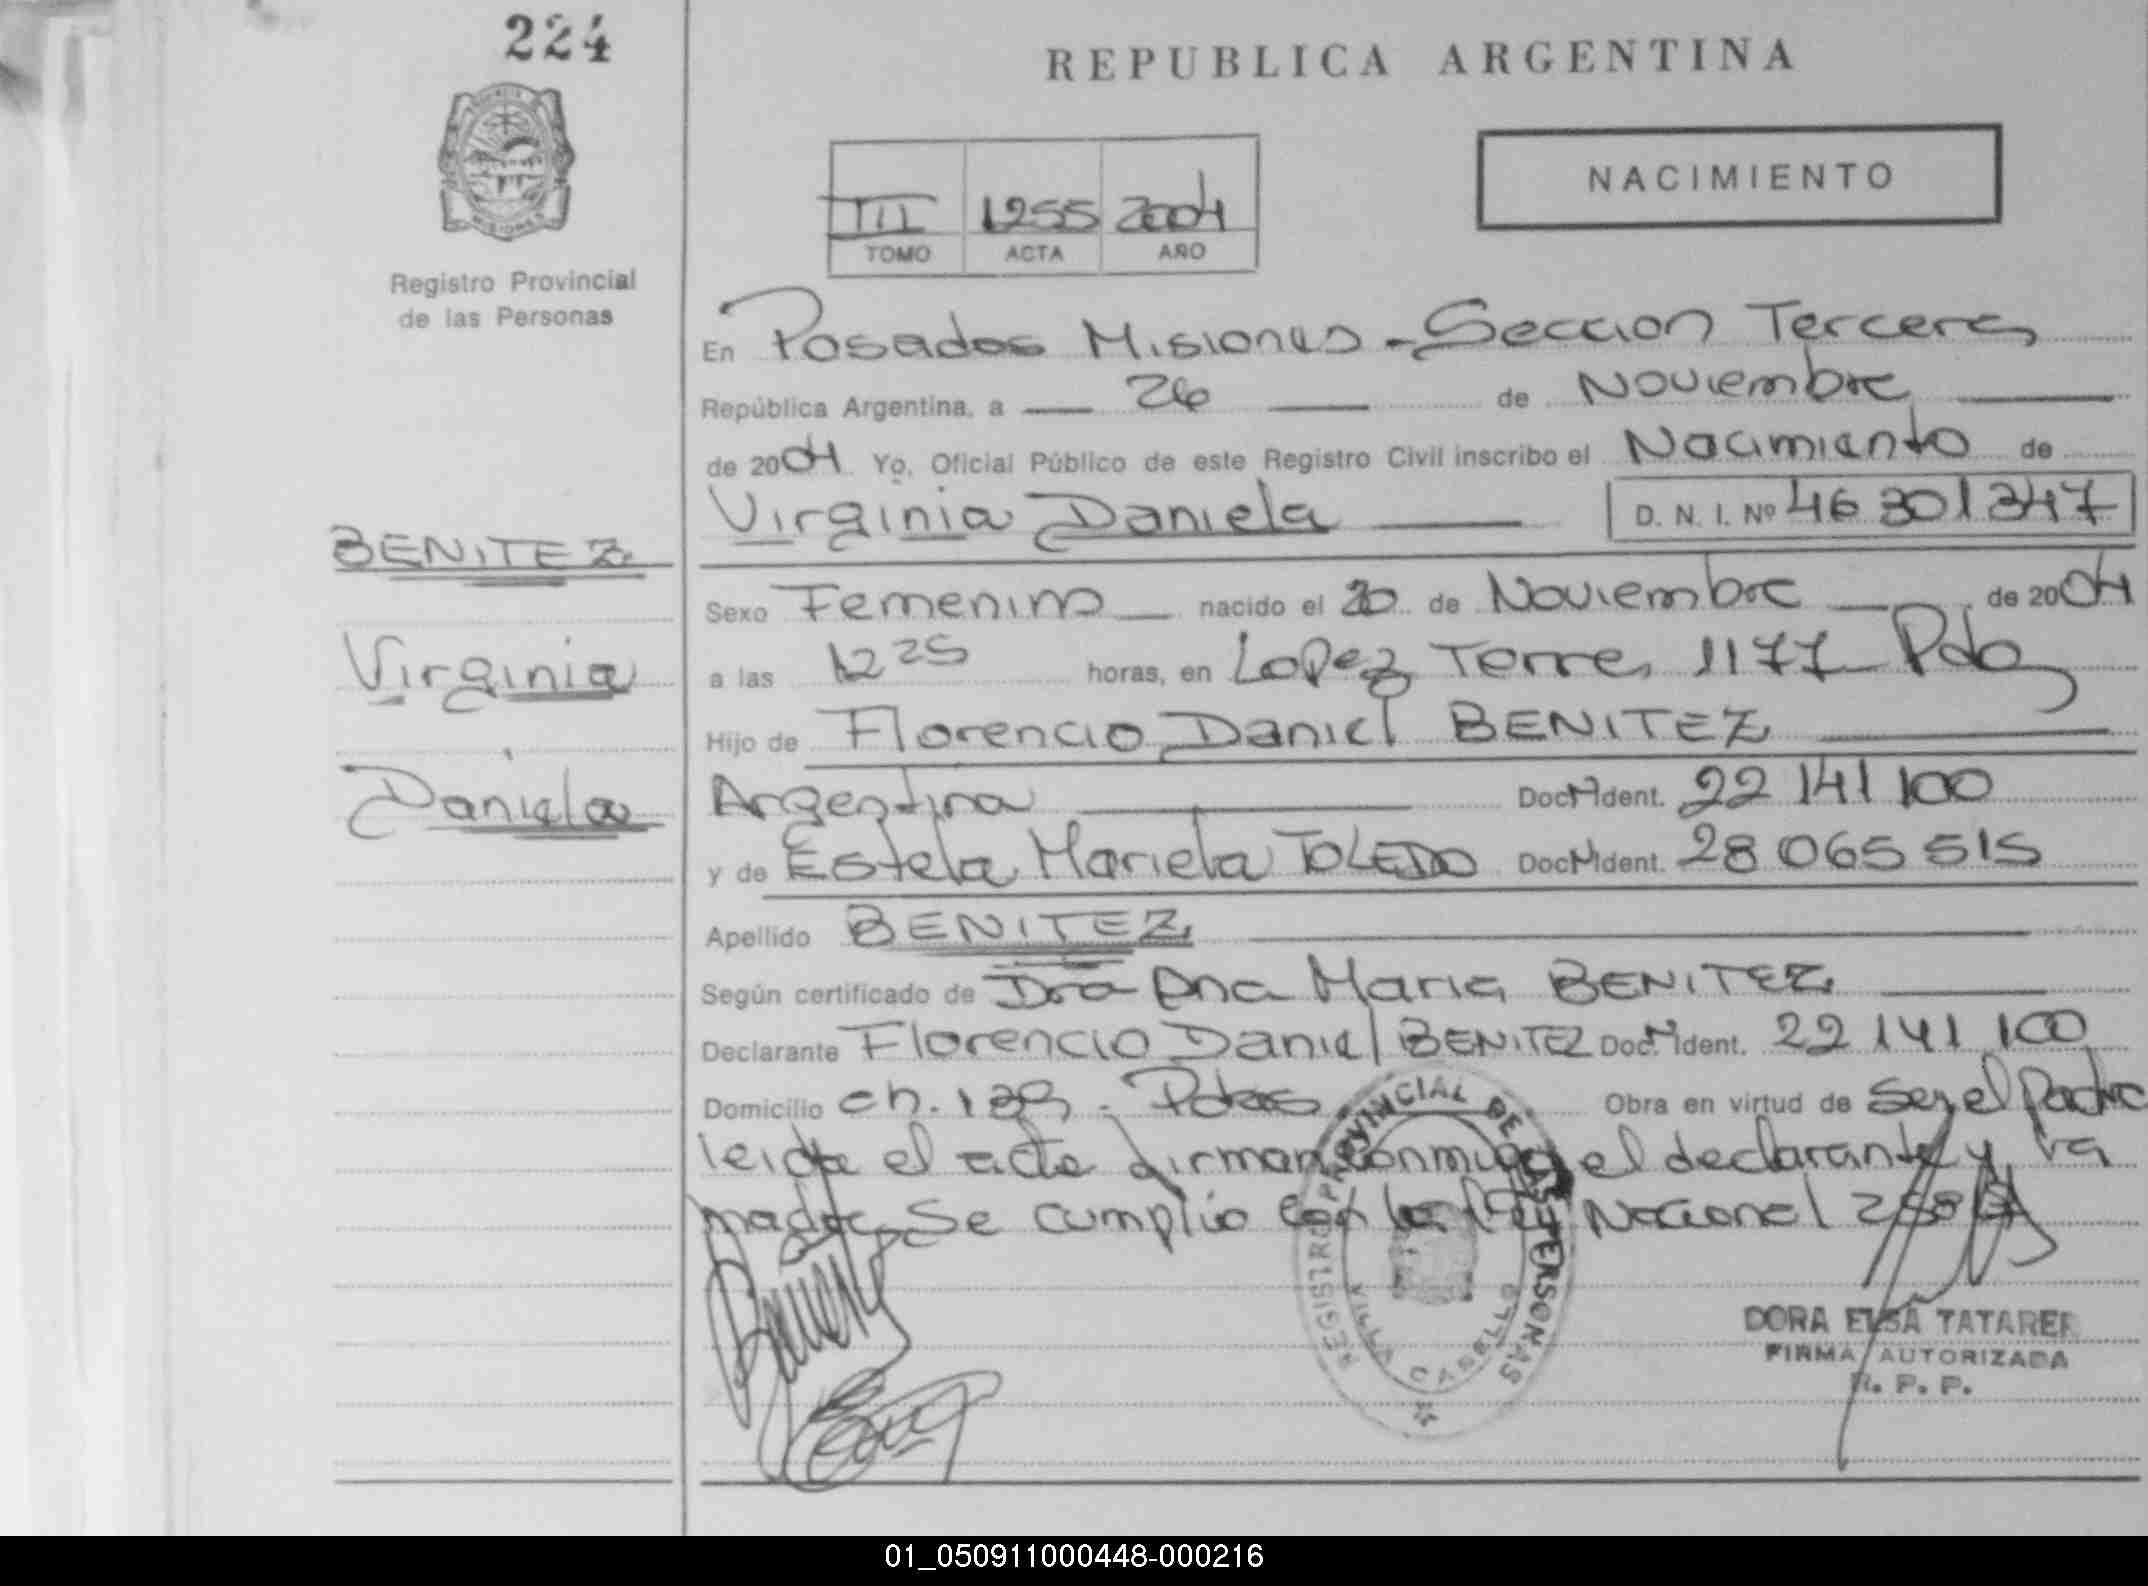 224
REPUBLICA ARGENTINA
NACIMIENTO
III 1255 2004
TOMO ACTA AÑO
PROVINCIA
MISIONES
Registro Provincial
de las Personas
En Posadas Misiones - Seccion Tercera
República Argentina, a 26 de Noviembre
de 2004 Yo, Oficial Público de este Registro Civil inscribo el Nacimiento de
Virginia Daniela D. N. I. Nº 46 301 347
BENITEZ
Virginia
Daniela
Sexo Femenino nacido el 20 de Noviembre de 2004
a las 12 25 horas, en Lopez Torre, 1177 Pda
Hijo de Florencio Daniel BENITEZ
Argentina Doc. Ident. 22 141 100
y de Estela Mariela TOLEDO Doc. Ident. 28 065 515
Apellido BENITEZ
Según certificado de Dra Ana Maria BENITEZ
Declarante Florencio Daniel BENITEZ Doc. Ident. 22 141 100
Domicilio ch. Pdas Obra en virtud de Ser el Padre
leida el acta firman conmigo el declarante y la
madre Se cumplio con la Ley Nacional
REGISTRO PROVINCIAL DE LAS PERSONAS
VILLA CABELLO
DORA ELSA TATARER
FIRMA AUTORIZADA
R. P. P.
01_050911000448-000216